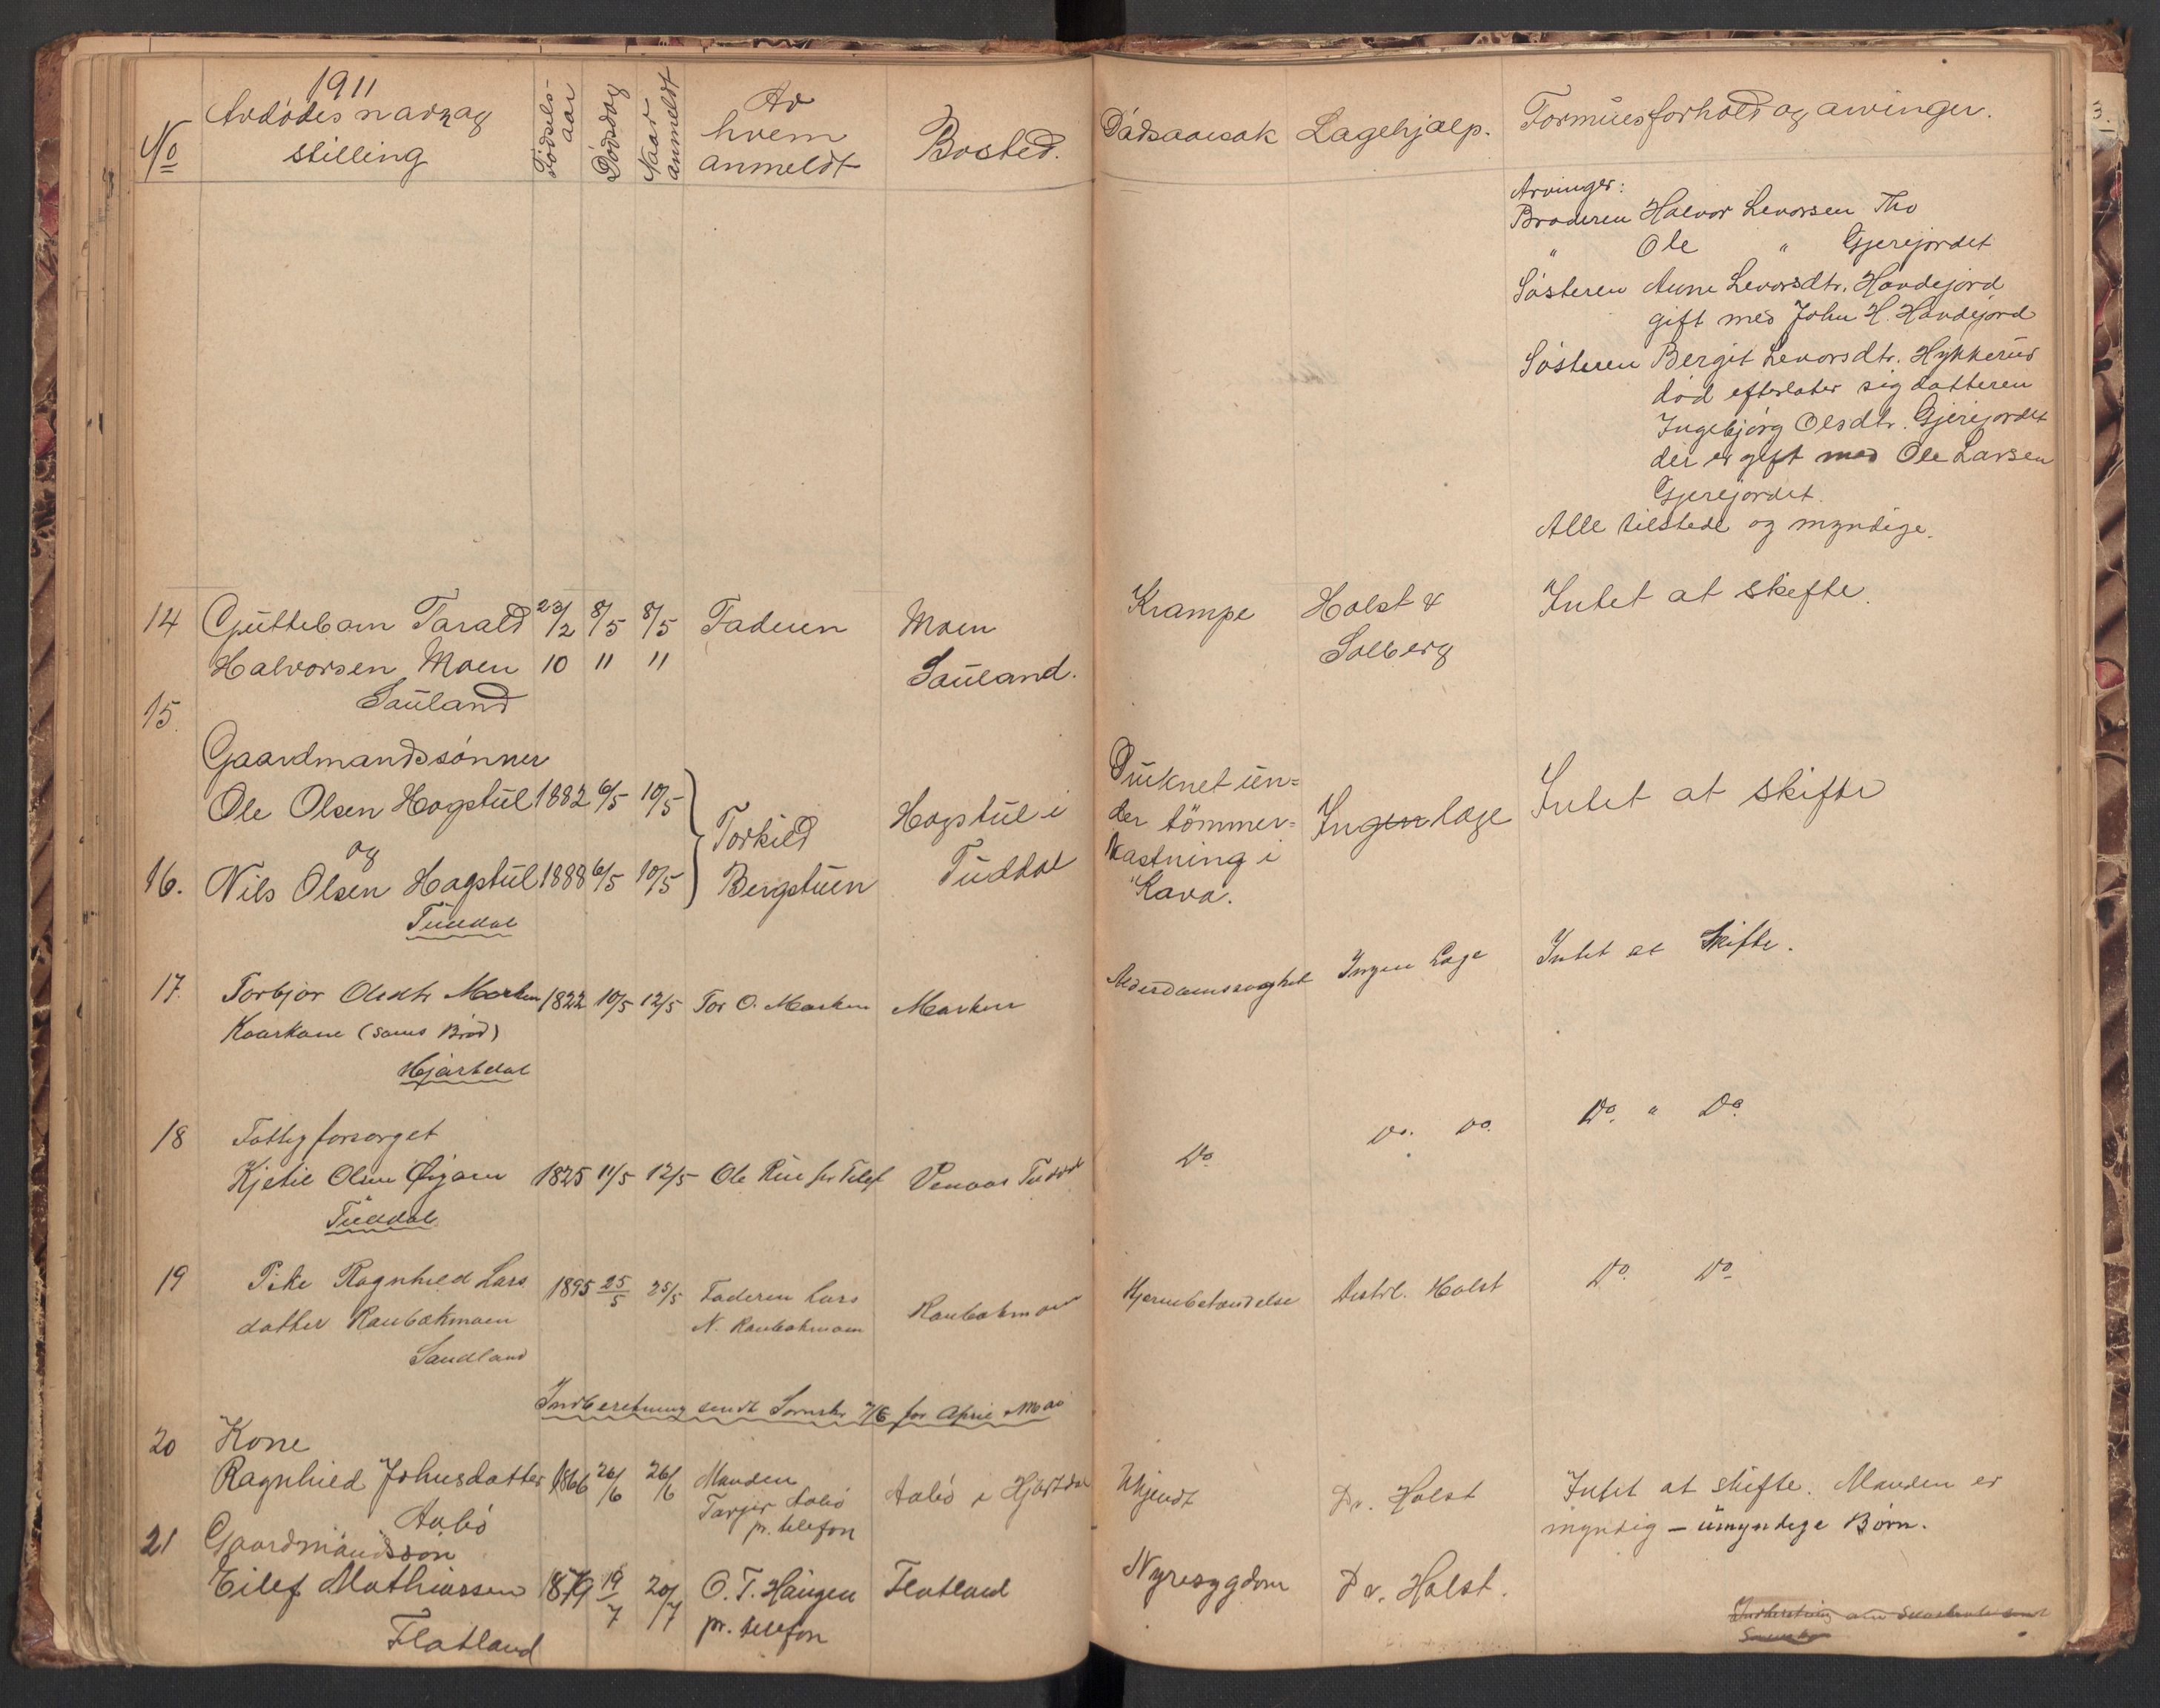 1911
No
Avdødes navn og
stilling
Fødsels-
aar
Dødsdag
Naar
anmeldt
Av
hvem
anmeldt
Bosted.
Dødsaarsak
Lægehjælp.
Formuesforhold og arvinger.
Arvinger:
Broderen Halvor Levorsen Tho
" Ole " Gjerejordet
Søsteren Anne Levorsdtr. Hovdejord
gift med John H. Hovdejord
Søsteren Bergit Levorsdtr. Hykkerud
død efterlater sig datteren
Ingebjørg Olsdtr. Gjerejordet
der er gift med Ole Larsen
Gjerejordet.
Alle tilstede og myndige.
14 Guttebarn Tarald 23/2 8/5 8/5 Faderen Moen Krampe Holst & Intet at skifte.
Halvorsen Moen 10 11 11 Sauland. Solberg
Sauland
15.
Gaardmandssønner
Ole Olsen Hogstul 1882 6/5 10/5 Torkild Hogstul i Druknet un= Ingen læge Intet at skifte
og der tømmer=
16. Nils Olsen Hogstul 1888 6/5 10/5 Bergstuen Tuddal kastning i
Tuddal Kava.
17. Torbjør Olsdtr Marken 1822 10/5 12/5 Tor O. Marken Marken Alderdomssvaghet Ingen Læge Intet at skifte.
Kaarkone (sams Brød)
Hjartdal
18 Fattigforsørget
Kjetil Olsen Øygarn 1825 11/5 12/5 Ole Rue pr Telef Venaas Tuddal Do Do. Do. Do. " Do.
Tuddal
19 Pike Ragnhild Lars 1895 25/5 25/5 Faderen Lars Raubakmoen Hjernebetændelse Distrl. Holst Do. Do.
datter Raubakmoen N. Raubakmoen
Saudland
Indberetning sendt Sornskr. 7/6 for April Mai
20 Kone
Ragnhild Johnsdatter 1866 26/6 26/6 Manden Aabø i Hjartdal Ukjendt Dr. Holst Intet at skifte. Manden er
Aabø Targjer Aabø myndig – umyndige Børn.
pr. telefon
21 Gaardmandssøn
Eilef Mathiassen 1879 19/7 20/7 O. T. Haugen Flatland Nyresygdom Dr. Holst.
Flatland pr. telefon